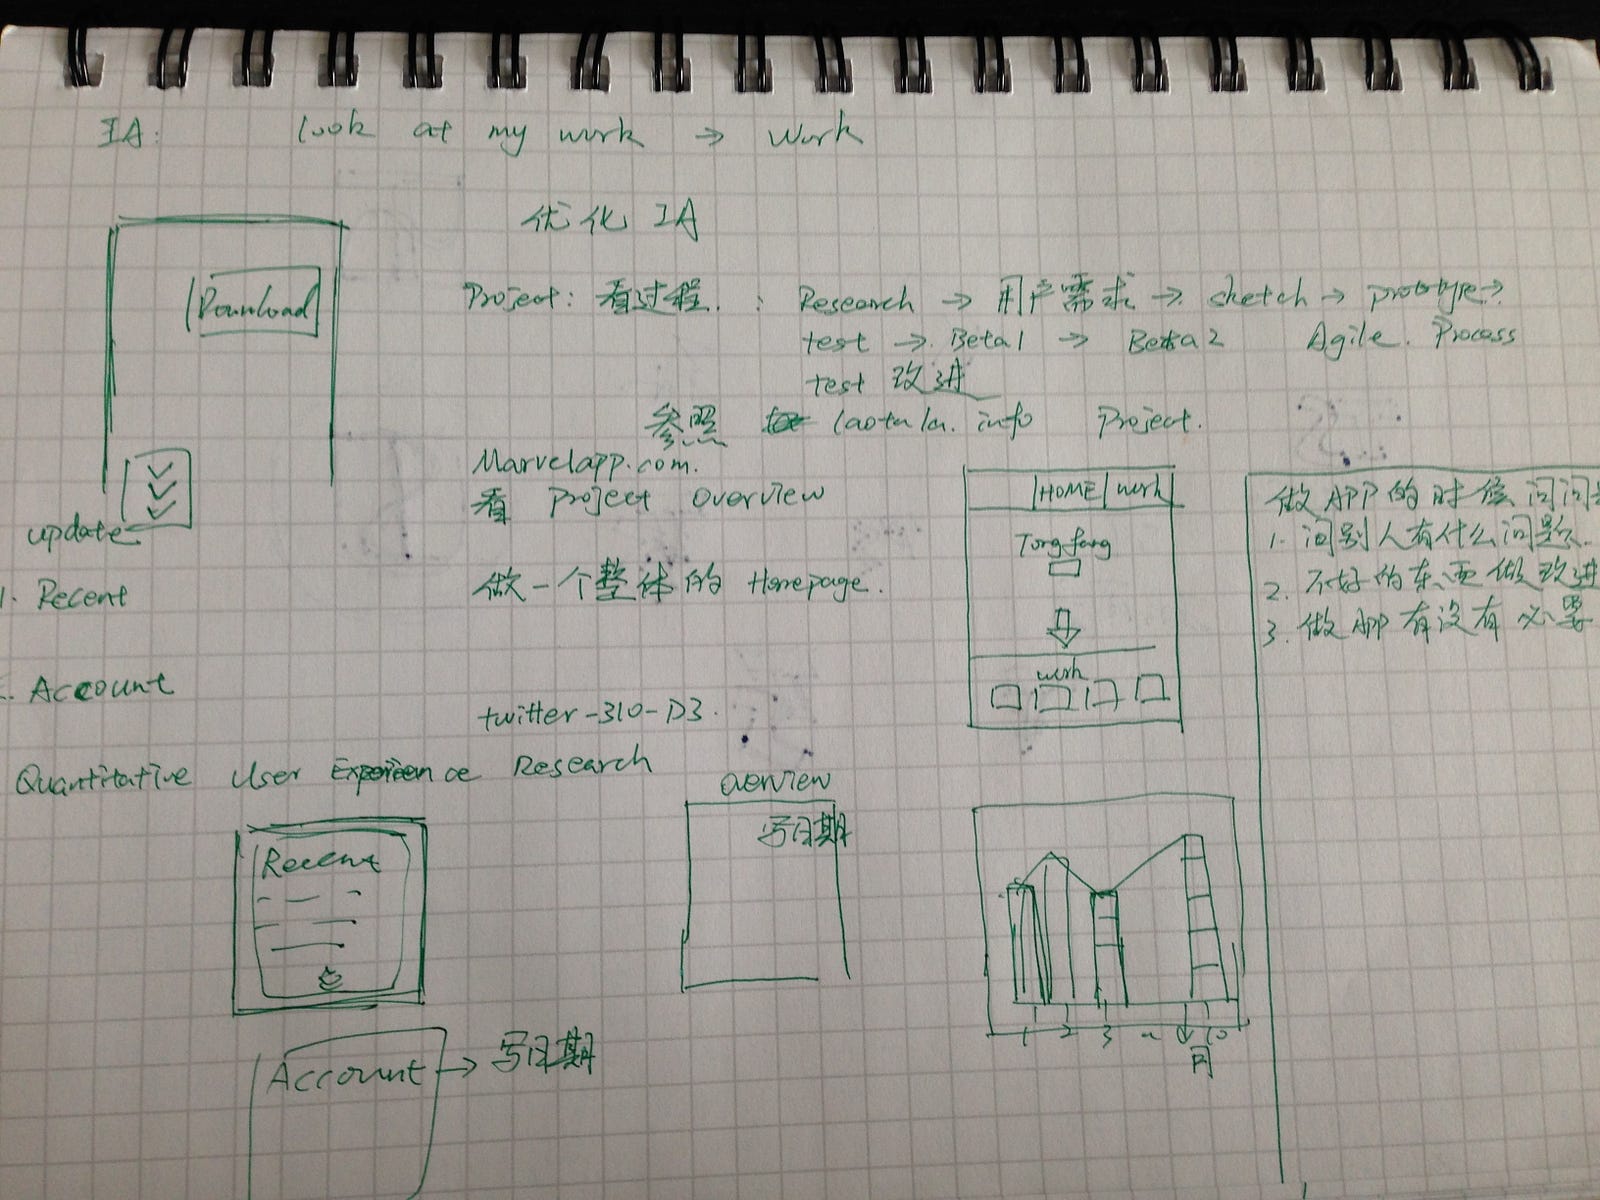 IA: look at my work → Work
优化 IA
Download
Project: 看过程. : Research → 用户需求 → sketch → prototype →
test → Beta1 → Beta2 Agile. Process
test 改进
参照 laotula.info Project.
Marvelapp.com.
看 Project Overview
update
1. Recent
做一个整体的 Homepage.
HOME work
Tongfang
work
做APP的时候问问
1. 问别人有什么问题.
2. 不好的东西做改进
3. 做APP有没有必要
. Account
twitter-310-D3.
Quantitative User Experience Research
Recent
overview
写日期
1 2 3 ~ 10
月
Account → 写日期